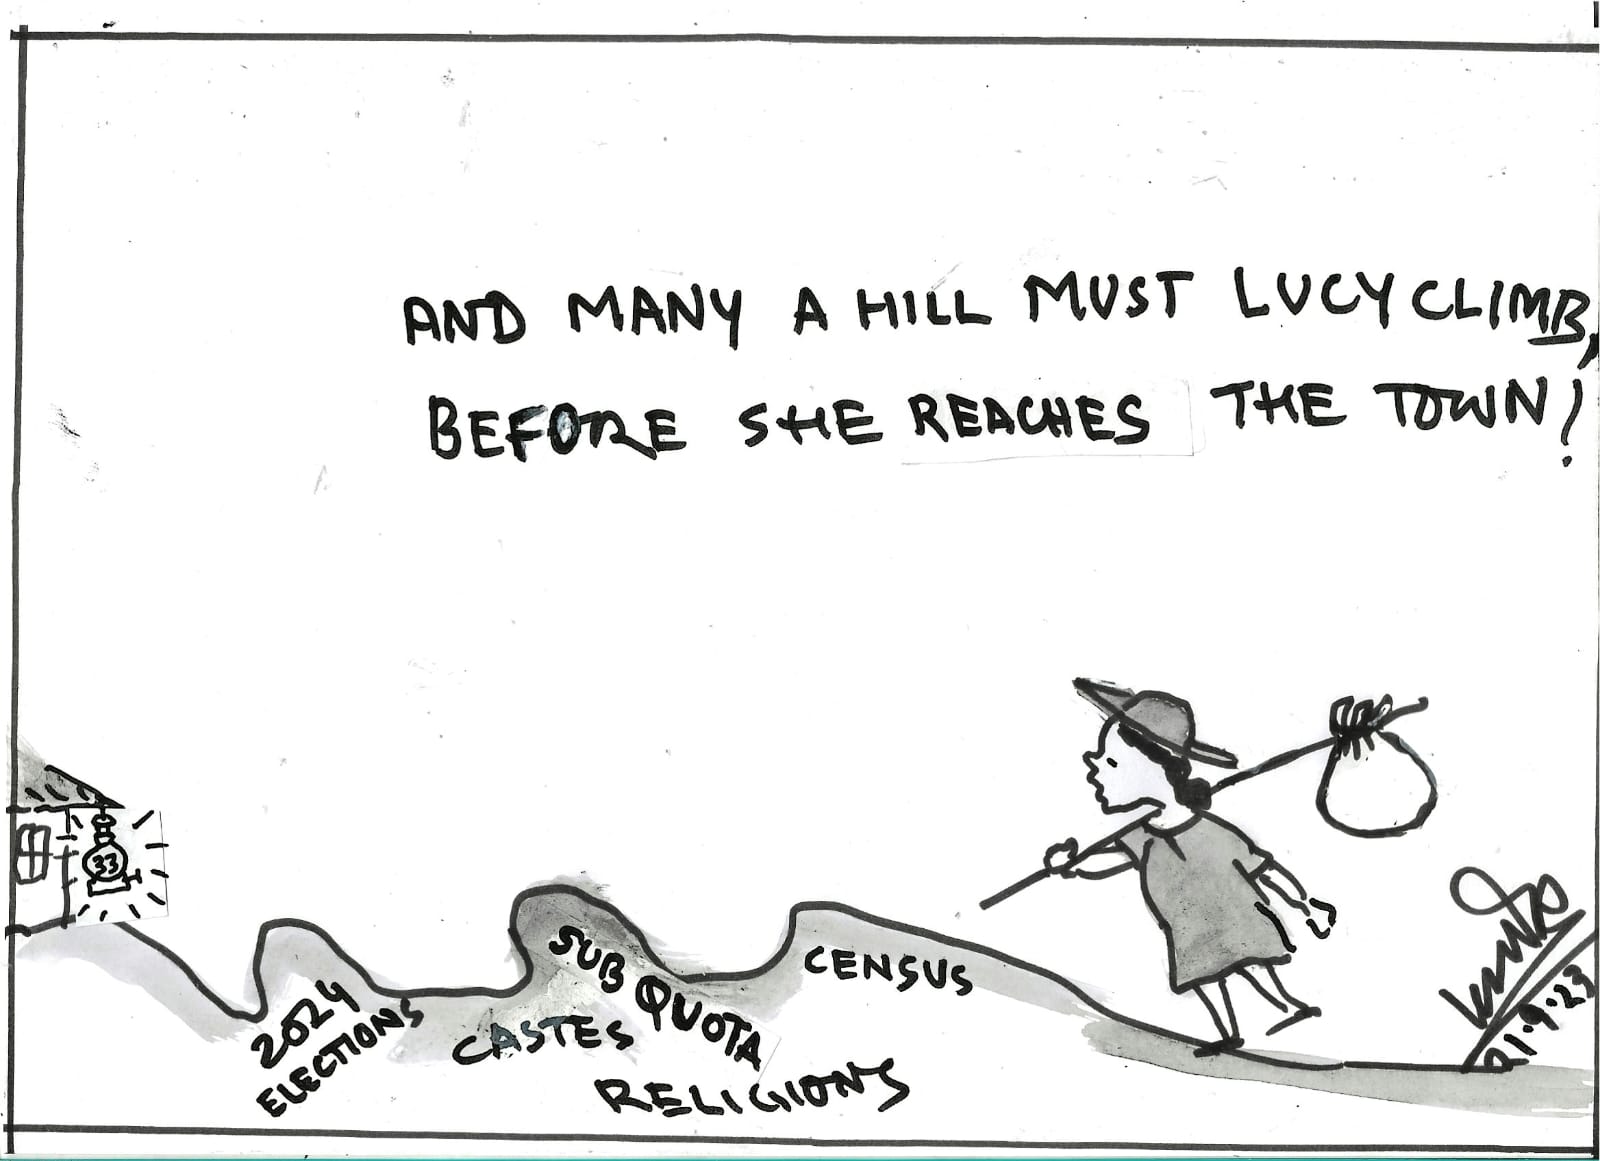 AND MANY A HILL MUST LUCY CLIMB,
BEFORE SHE REACHES THE TOWN!
33
2024
ELECTIONS
SUB QUOTA
CASTES
RELIGIONS
CENSUS
21·9'23